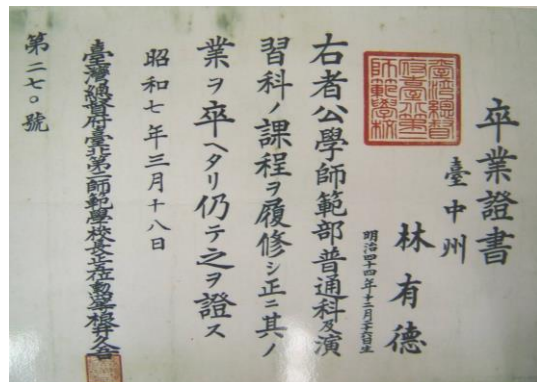 卒業證書
臺中州
林有德
明治四十四年十二月
右者公學師範部普通科及演
習科ノ課程ヲ履修シ正ニ其ノ
業ヲ卒ヘタリ仍テ之ヲ證ス
昭和七年三月十八日
臺灣總督府臺北第二師範學校長正五位勳
第二七〇號